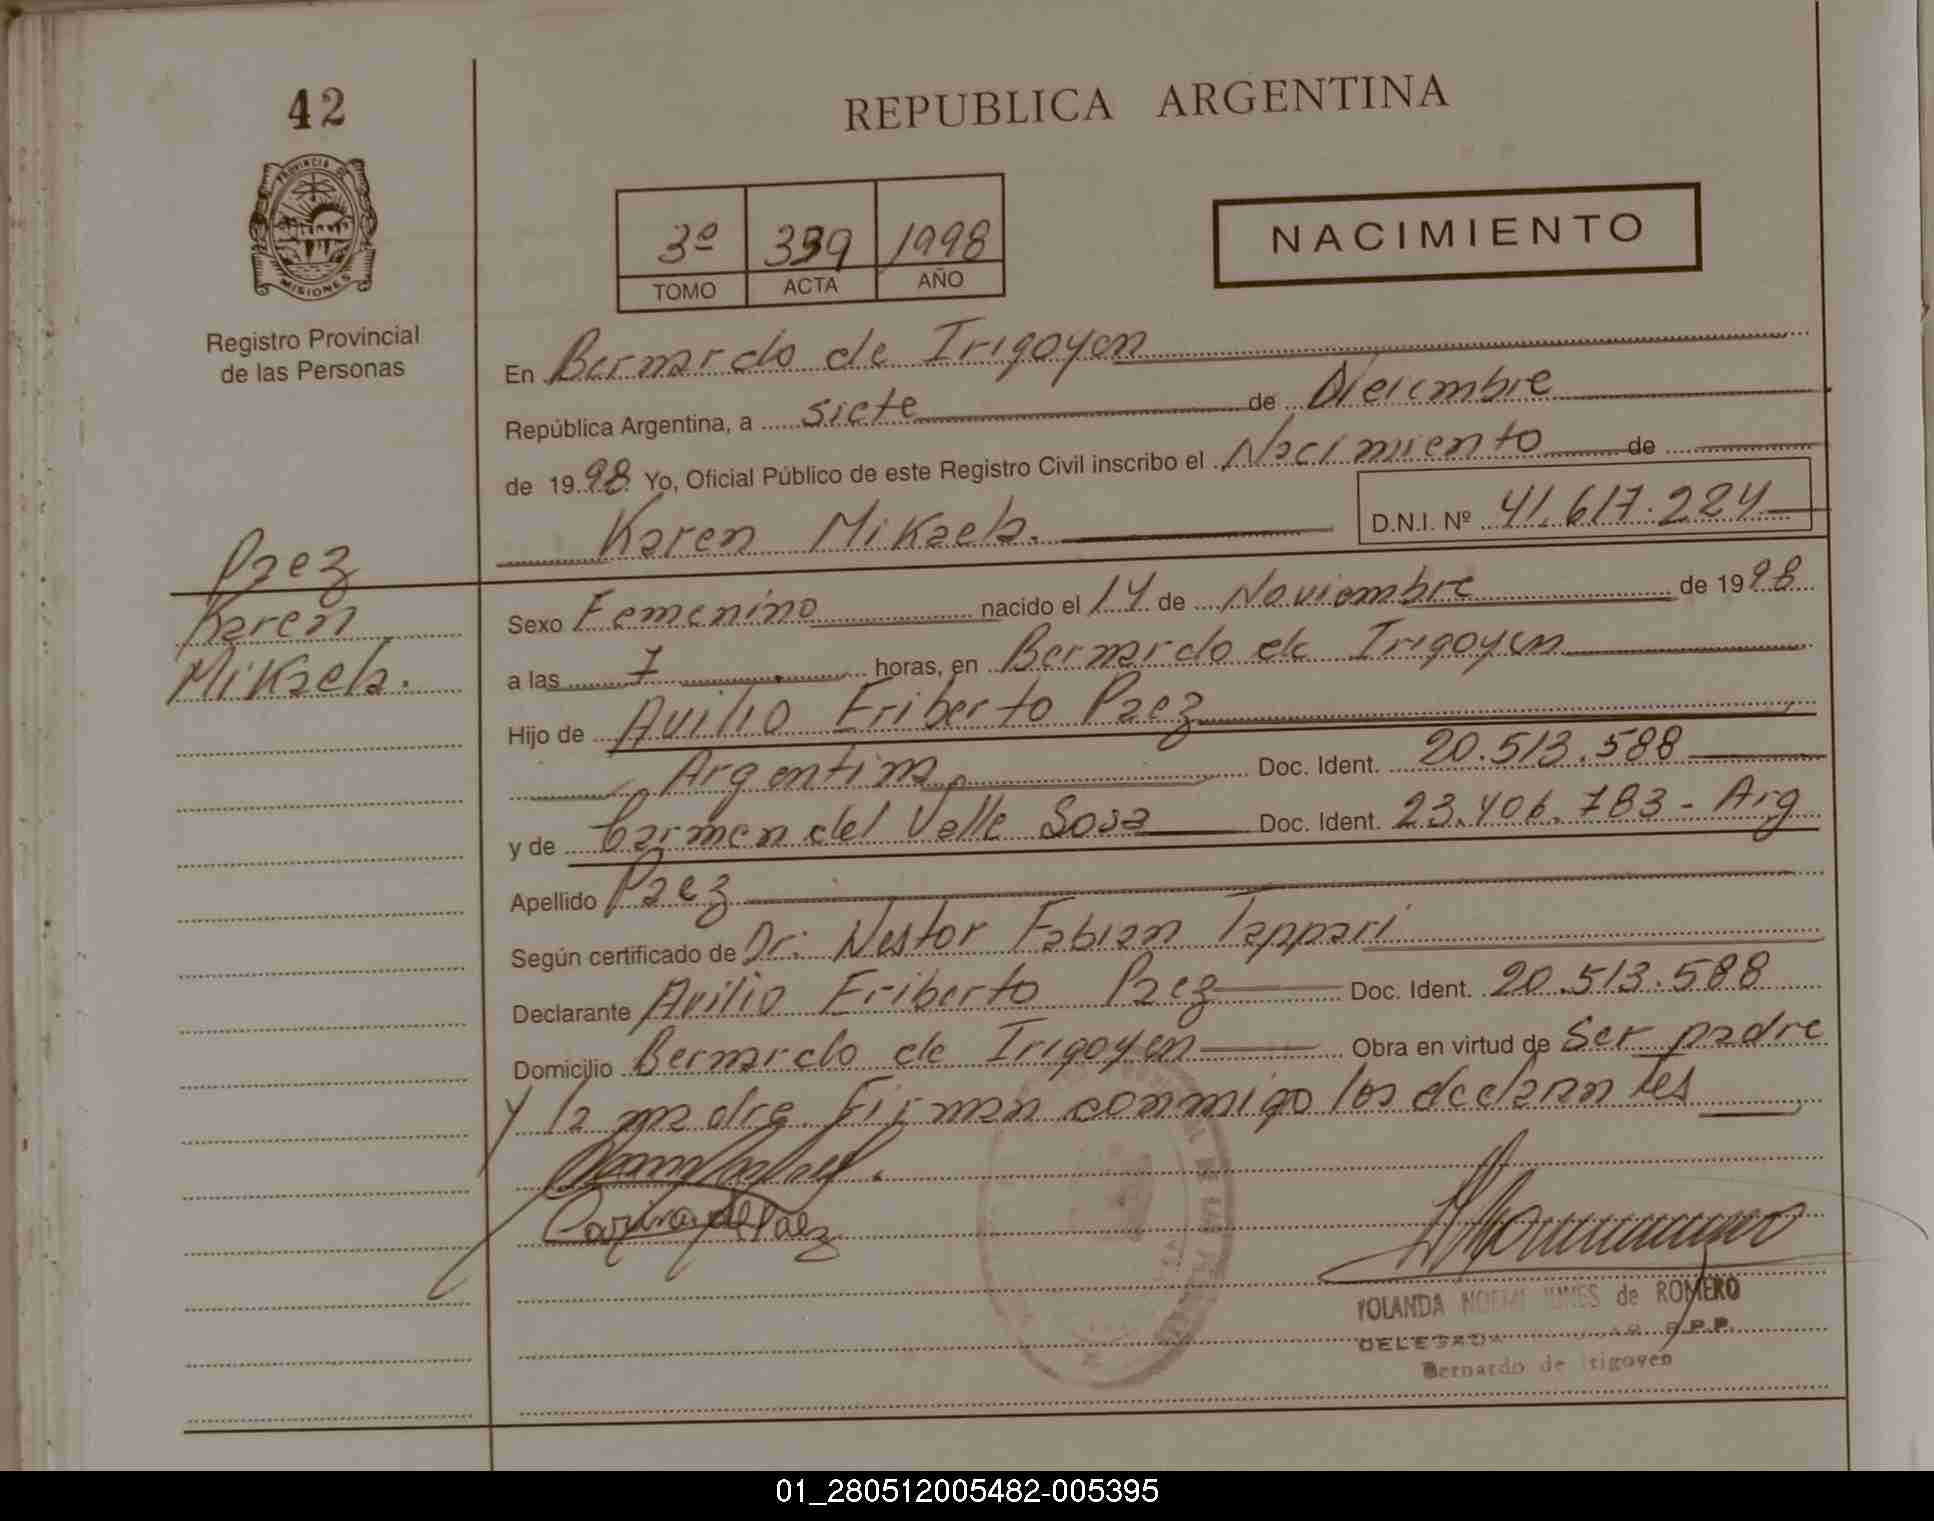 42
REPUBLICA ARGENTINA
PROVINCIA DE
MISIONES
Registro Provincial
de las Personas
3º 339 1998
TOMO ACTA AÑO
NACIMIENTO
En Bernardo de Irigoyen
República Argentina, a siete de Diciembre
de 1998 Yo, Oficial Público de este Registro Civil inscribo el Nacimiento de
Karen Mikaela. D.N.I. Nº 41.617.224
Paez
Karen
Mikaela.
Sexo Femenino nacido el 14 de Noviembre de 1998
a las 7 horas, en Bernardo de Irigoyen
Hijo de Avilio Eriberto Paez
Argentina Doc. Ident. 20.513.588
y de Carmen del Valle Sosa Doc. Ident. 23.406.783 - Arg
Apellido Paez
Según certificado de Dr: Nestor Fabian Tappari
Declarante Avilio Eriberto Paez Doc. Ident. 20.513.588
Domicilio Bernardo de Irigoyen Obra en virtud de Ser padre
y la madre. Firman conmigo los declarantes
YOLANDA NOEMI de ROMERO
DELEGADA R.P.P.
Bernardo de Irigoyen
01_280512005482-005395